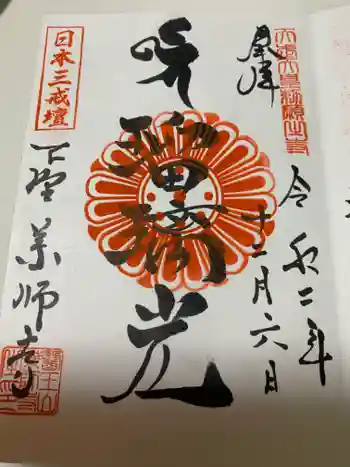 奉拝
令和二年
十二月六日
吠瑠璃光
日本三戒壇
下野薬師寺